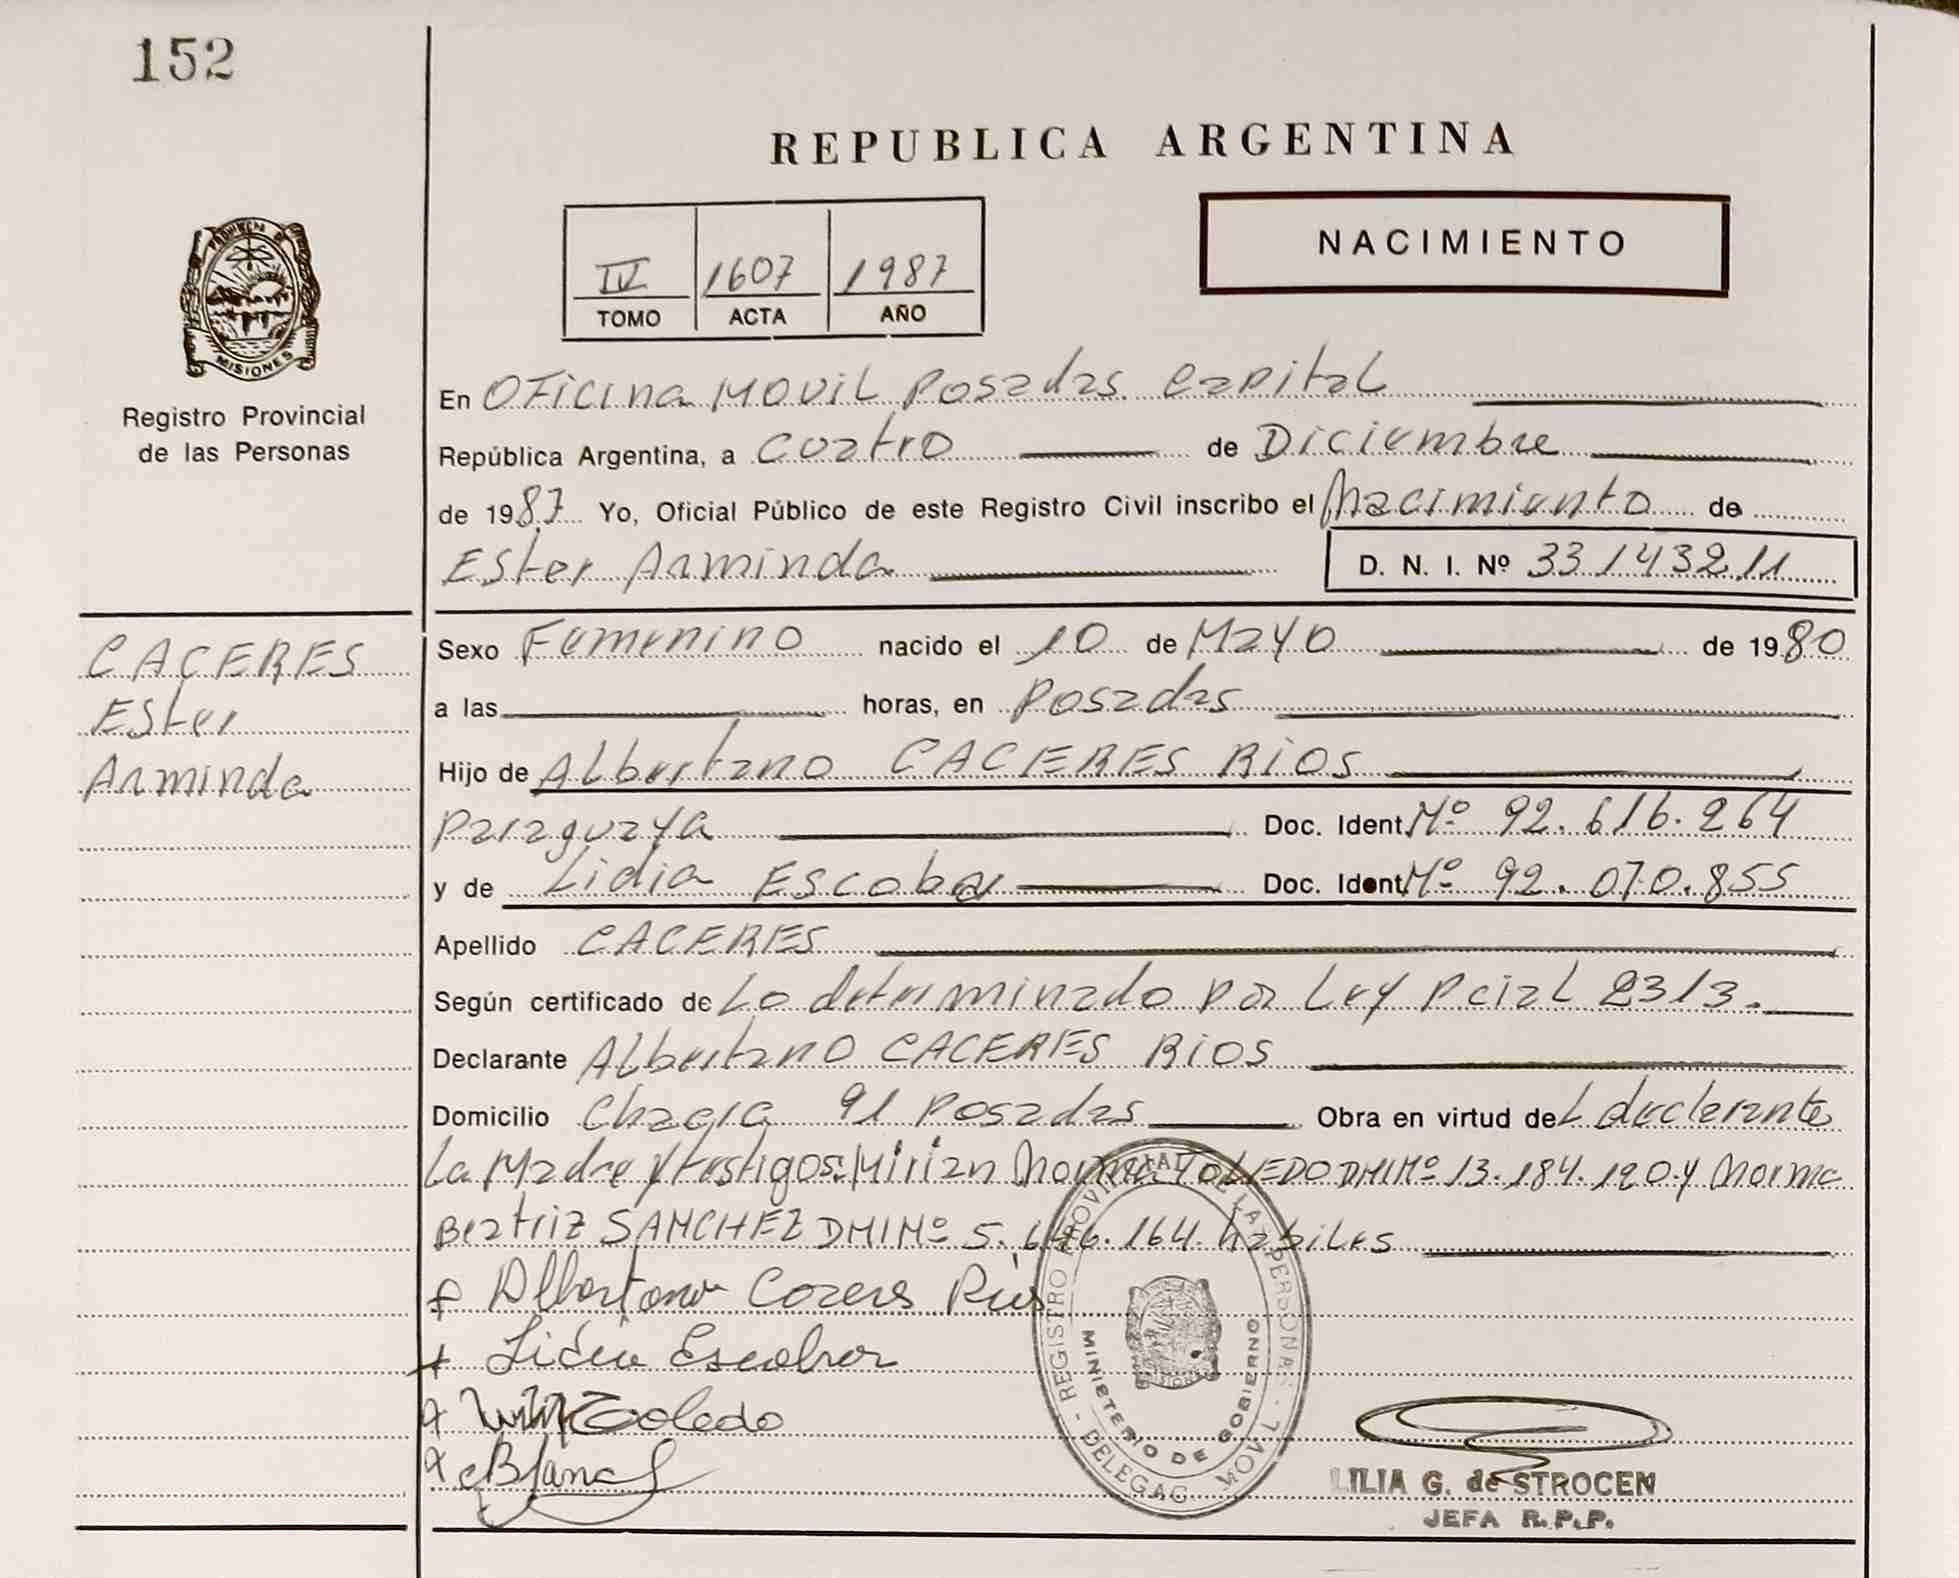 152
REPUBLICA ARGENTINA
NACIMIENTO
IV 1607 1987
TOMO ACTA AÑO
PROVINCIA DE
MISIONES
Registro Provincial
de las Personas
En Oficina Movil Posadas Capital
República Argentina, a Cuatro de Diciembre
de 1987 Yo, Oficial Público de este Registro Civil inscribo el Nacimiento de
Ester Arminda D. N. I. Nº 33143211
CACERES
Ester
Arminda
Sexo Femenino nacido el 10 de Mayo de 1980
a las horas, en Posadas
Hijo de Albertano CACERES RIOS
Paraguaya Doc. Ident. Nº 92.616.264
y de Lidia Escobar Doc. Ident. Nº 92.070.855
Apellido CACERES
Según certificado de Lo determinado por Ley Pcial 2313.
Declarante Albertano CACERES RIOS
Domicilio Chacra 91 Posadas Obra en virtud de L declarante
La Madre y testigos: Mirian Norma TOLEDO DNI Nº 13.184.120 y Norma
Beatriz SANCHEZ DNI Nº 5.646.164. habiles
Albertano Caceres Rios
Lidia Escobar
Toledo
REGISTRO PROVINCIAL DE LAS PERSONAS - DELEGAC. MOVIL -
MINISTERIO DE GOBIERNO
LILIA G. de STROCEN
JEFA R.P.P.